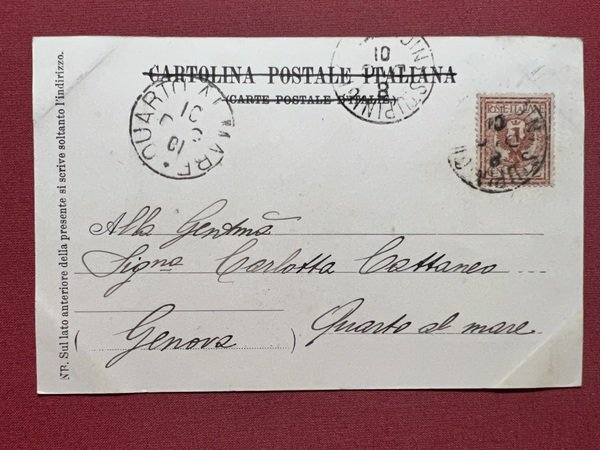 CARTOLINA POSTALE ITALIANA
(CARTE POSTALE D'ITALIE)
QUARTO AL MARE
POSTE ITALIANE
Alla Gentma
Signa Carlotta Cattaneo
Quarto al mare
(Genova)
NB. Sul lato anteriore della presente si scrive soltanto l'indirizzo.